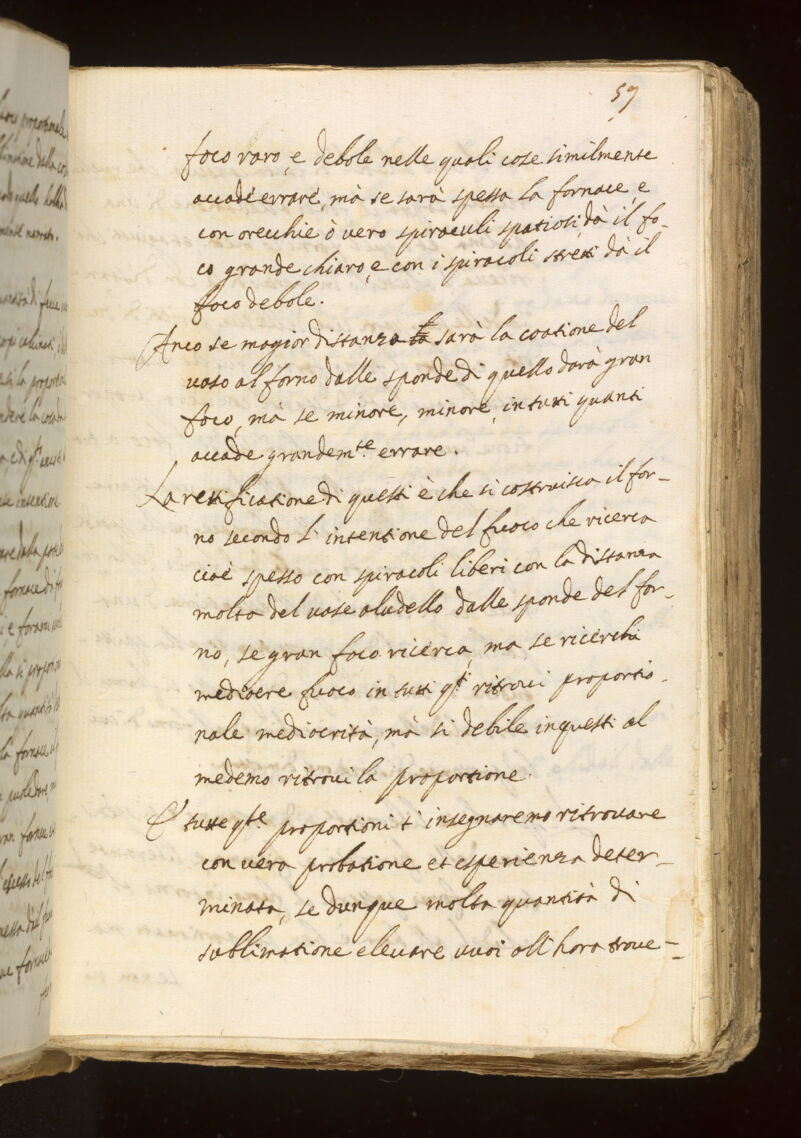 57
foco raro, e debole nelle quali cose similmente
accade errare, mà se sarà spessa la fornace e
con orecchie ò vero spiraculi spatiosi, dà il fo-
co grande chiaro, e con i spiracoli stretti dà il
foco debole.
Anco se magior distanza sarà la coatione del
vaso al forno dalle sponde di quello darà gran
foco, mà se minore, minore, in tutti quanti
accade grandem.te errare.
La rettificatione di questi è che si costruisca il for-
no secondo l' intentione del fuoco che ricerca
cioè spesso con spiracoli liberi con la distanza
molta del vase aludello dalle sponde del for-
no, se gran foco ricerca, ma se ricercha
mediocre fuoco in tutti q.ti ritrovi proportio-
nale mediocrità, mà si debile in questi al
medemo ritrovi la proportione.
E tutte q.te proportioni t' insegnaremo ritrovare
con vera probatione et esperienza deter-
minata, se dunque molta quantità di
sublimatione elevare vuoi all'hora trove-